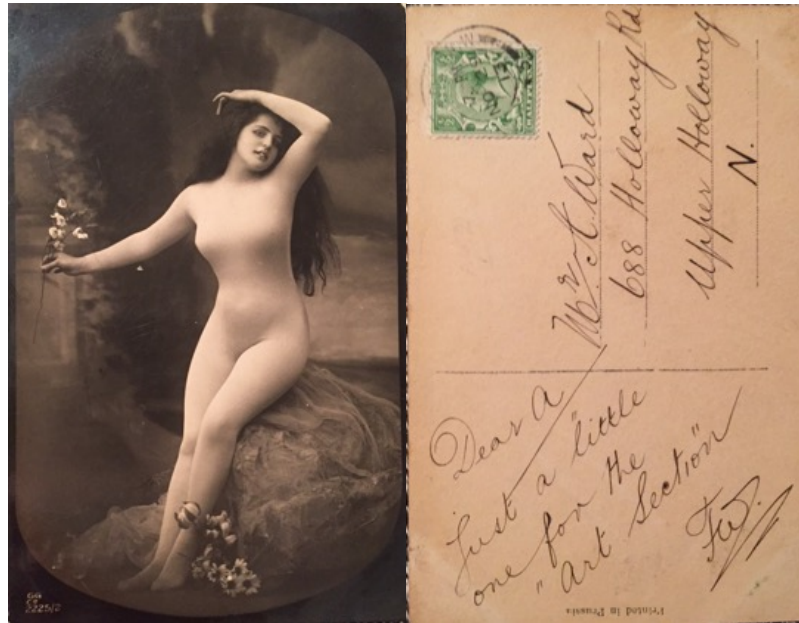 GG
Co
2225/2
Mr A. Ward
688 Holloway Rd
Upper Holloway
N.
Dear A
Just a "little
one for the
"Art Section"
FW.
Printed in Prussia